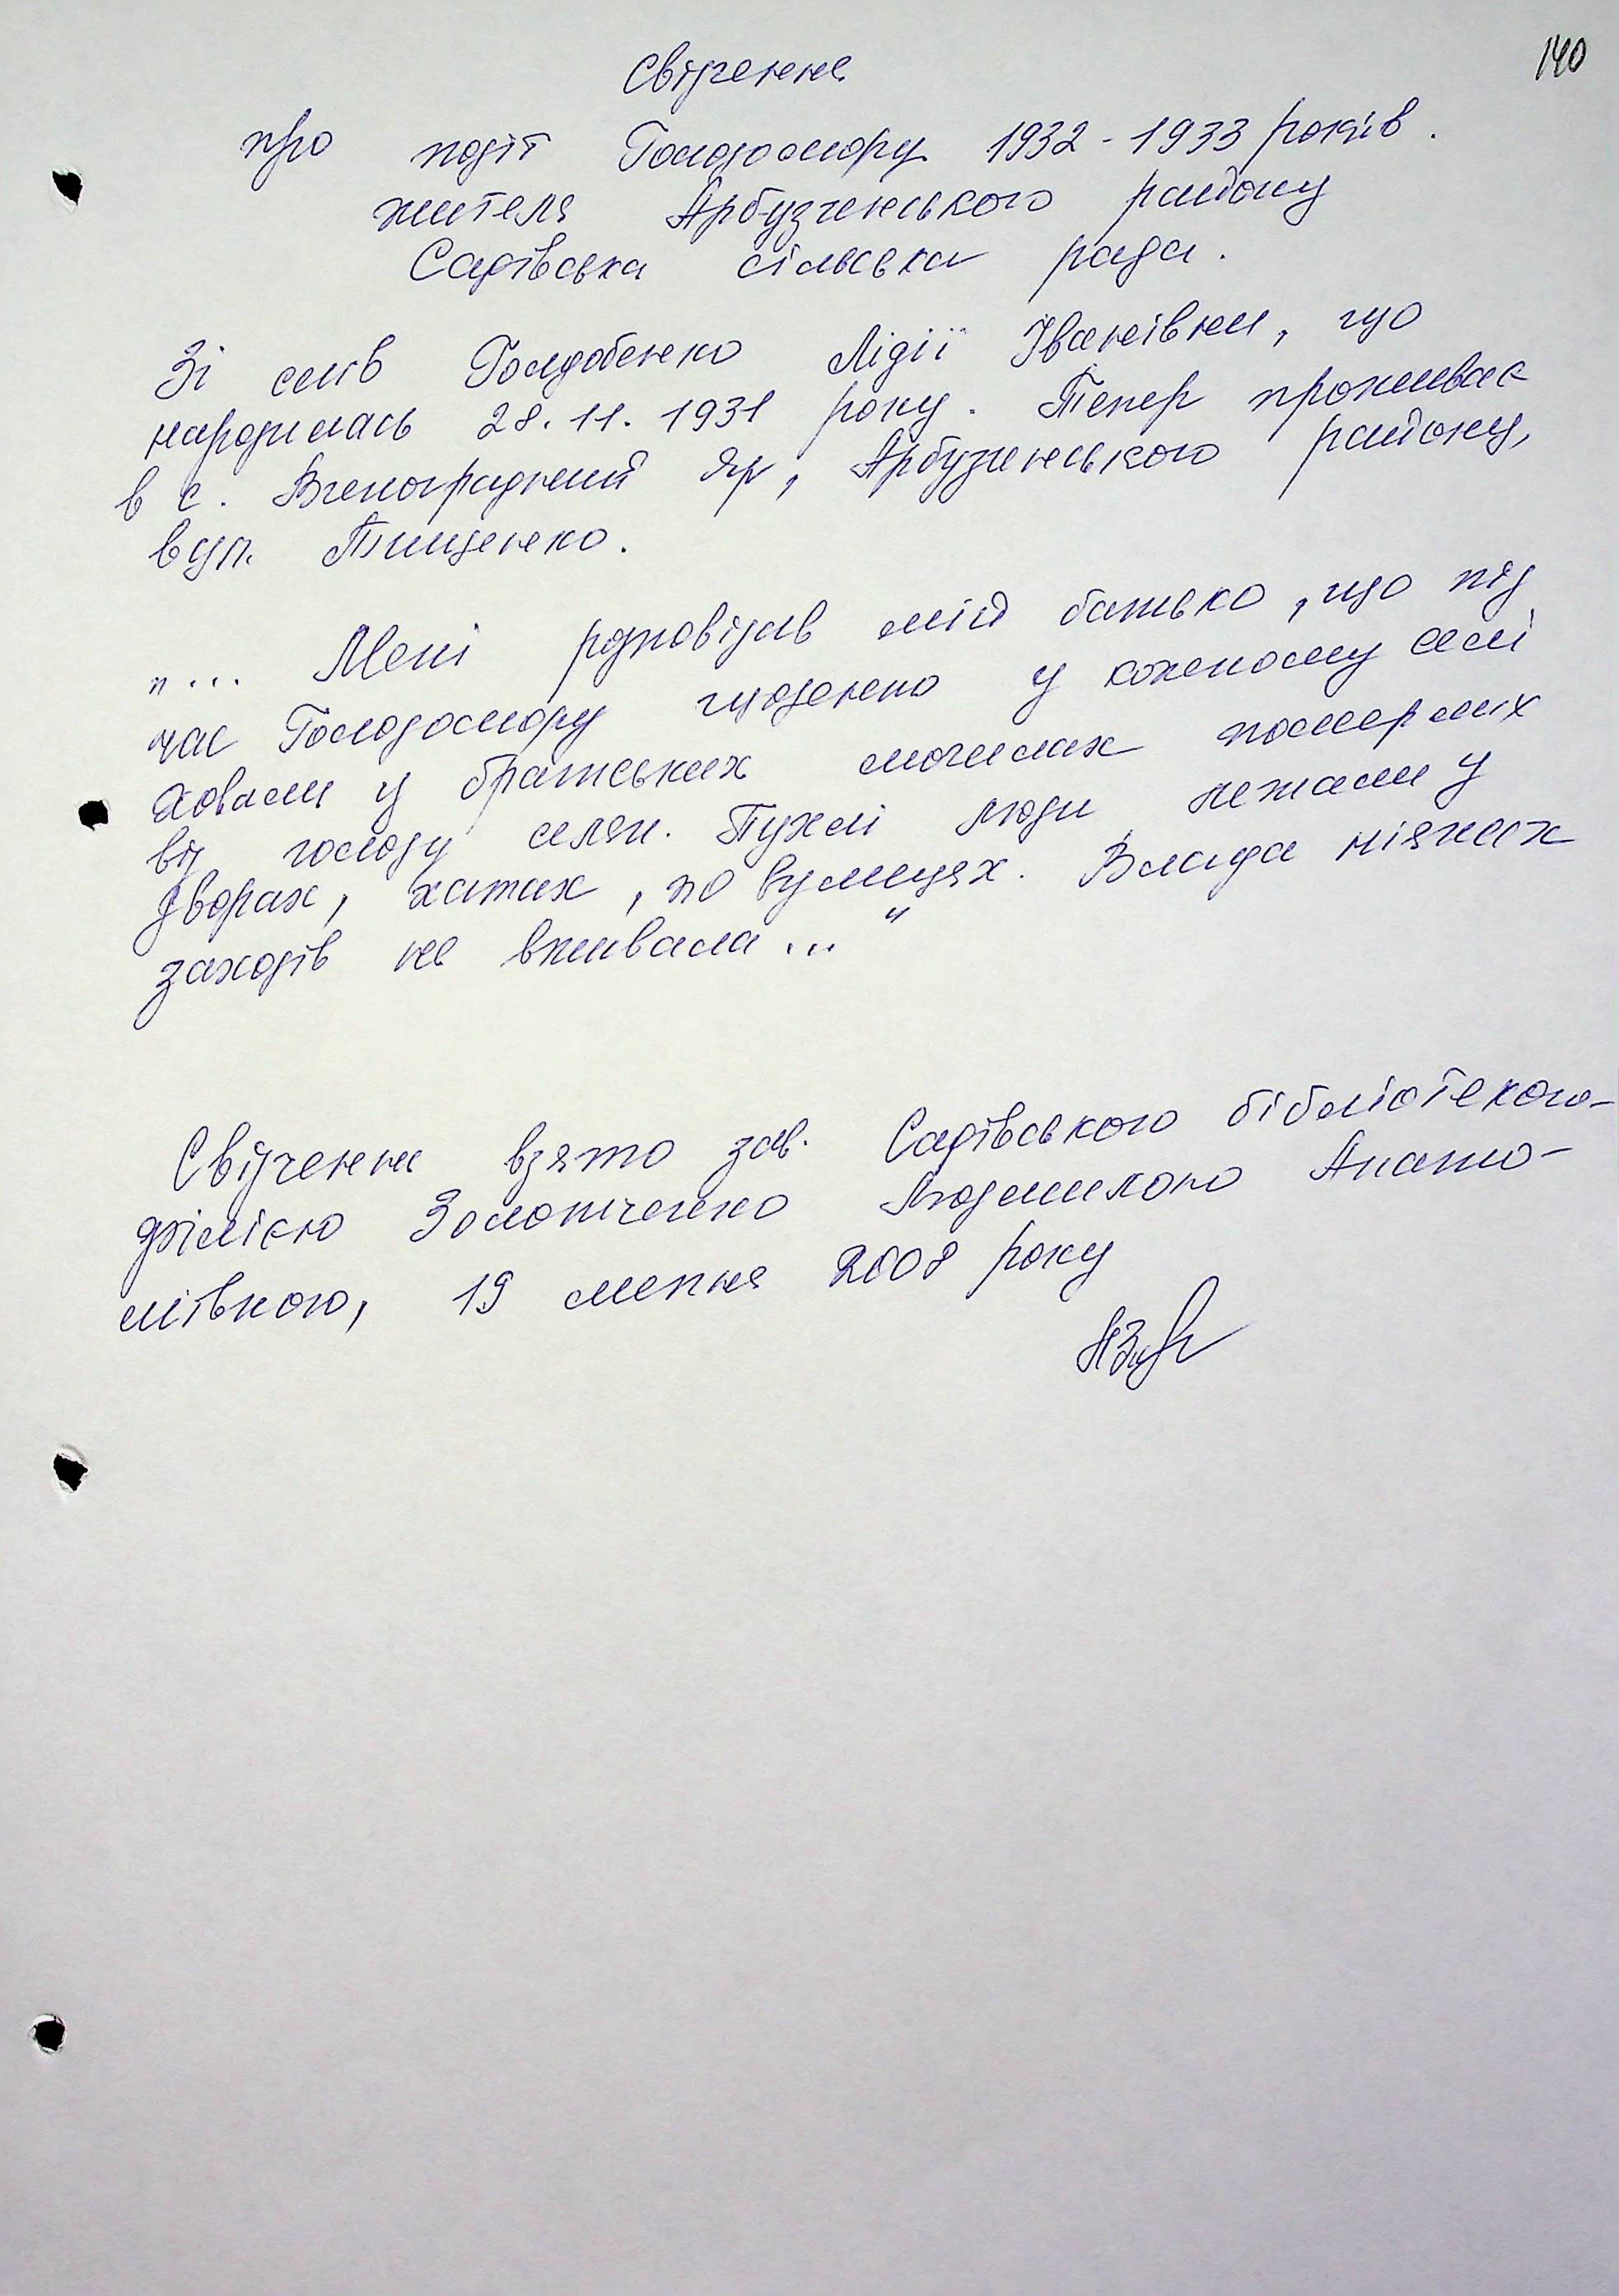 140
Свідчення
про події Голодомору 1932-1933 років.
жителя Арбузинського району
Садівська сільська рада.
Зі слів Голдобенко Лідії Іванівни, що
народилась 28.11.1931 року. Тепер проживає
в с. Виноградний Яр, Арбузинського району,
вул. Тищенко.
"... Мені розповідав мій батько, що під
час Голодомору щоденно у кожному селі
ховали у братських могилах померлих
від голоду селян. Пухлі люди лежали у
дворах, хатах, по вулицях. Влада ніяких
заходів не вживала..."
Свідчення взято зав. Садівського бібліотекою-
філією Золотченко Людмилою Анато-
ліївною, 19 липня 2008 року